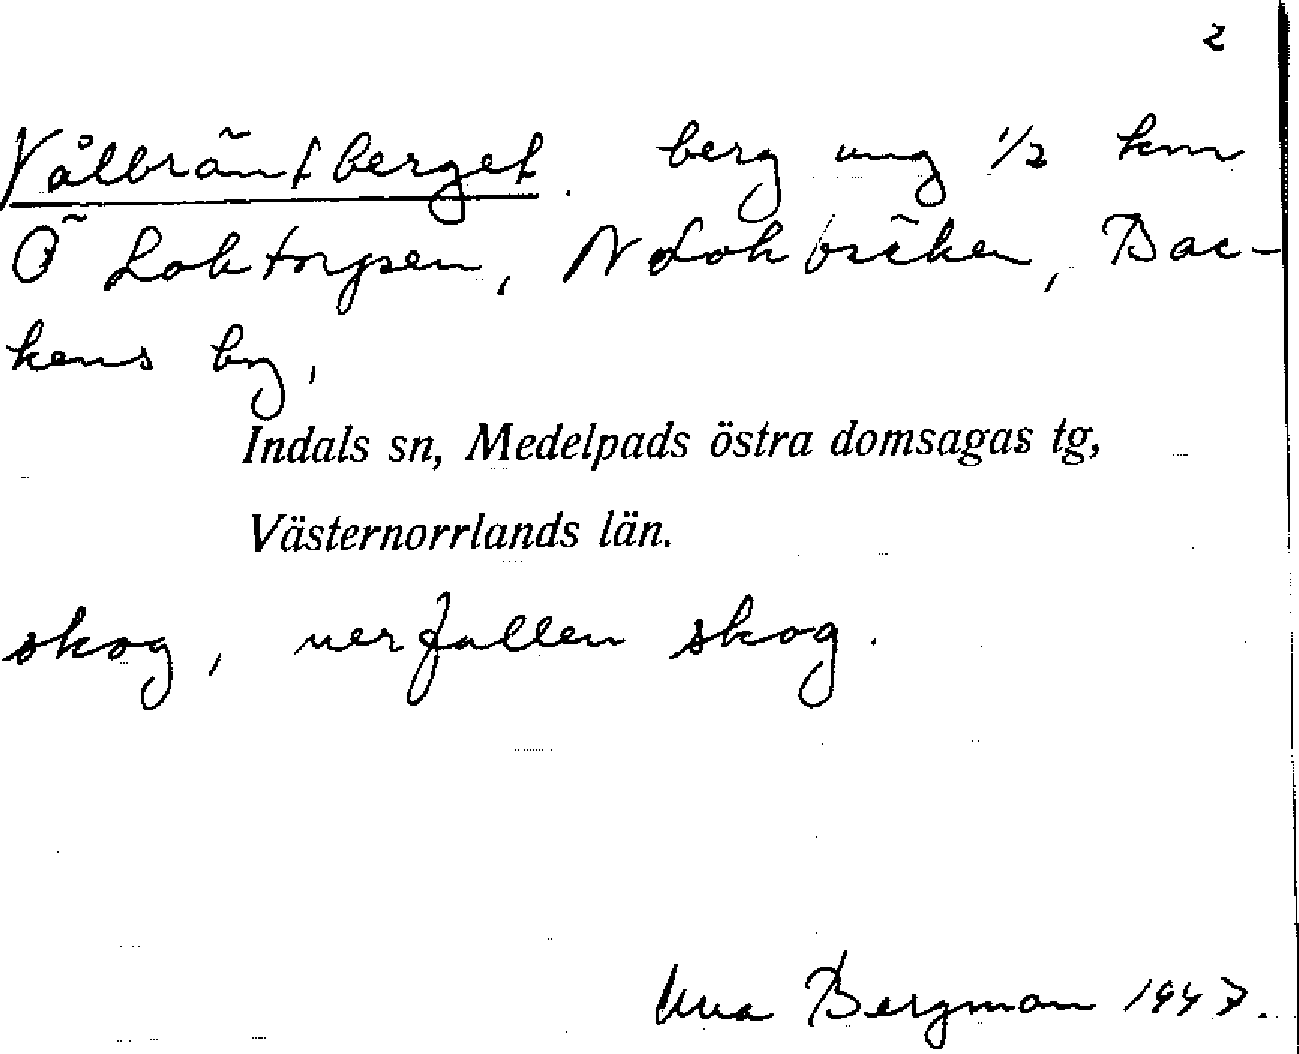 2
Vålbräntberget. berg ung 1/2 km
Ö Loktorpsen, N Lokbäcken, Bac-
kens by,
Indals sn, Medelpads östra domsagas tg,
Västernorrlands län.
skog, nerfallen skog.
Bergman 1947.